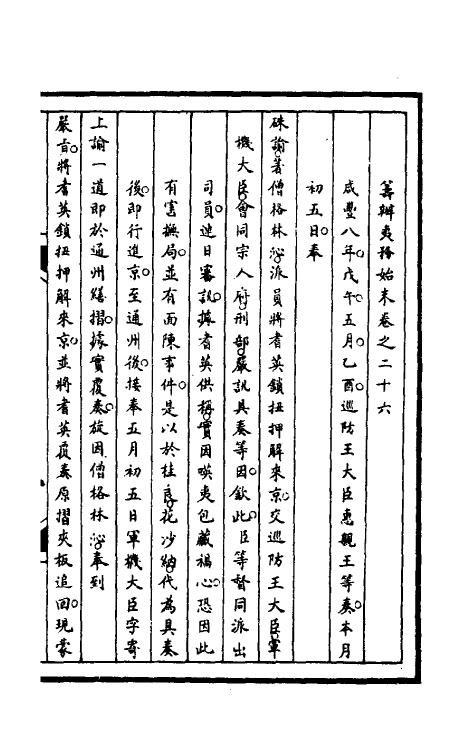 籌辦夷務始末卷之二十六
咸豐八年戊午五月乙酉巡防王大臣惠親王等奏本月
初五日奉
硃諭著僧格林沁派員將耆英鎖扭押解來京交巡防王大臣軍
機大臣會同宗人府刑部嚴訊具奏等因欽此臣等督同派出
司員連日審訊據耆英供稱實因暎夷包藏禍心恐因此
有害撫局並有面陳事件是以於桂良花沙納代為具奏
後即行進京至通州後接奉五月初五日軍機大臣字寄
上諭一道即於通州繕摺據實覆奏旋因僧格林沁奉到
嚴旨將耆英鎖扭押解來京並將耆英覆奏原摺夾板追回現蒙